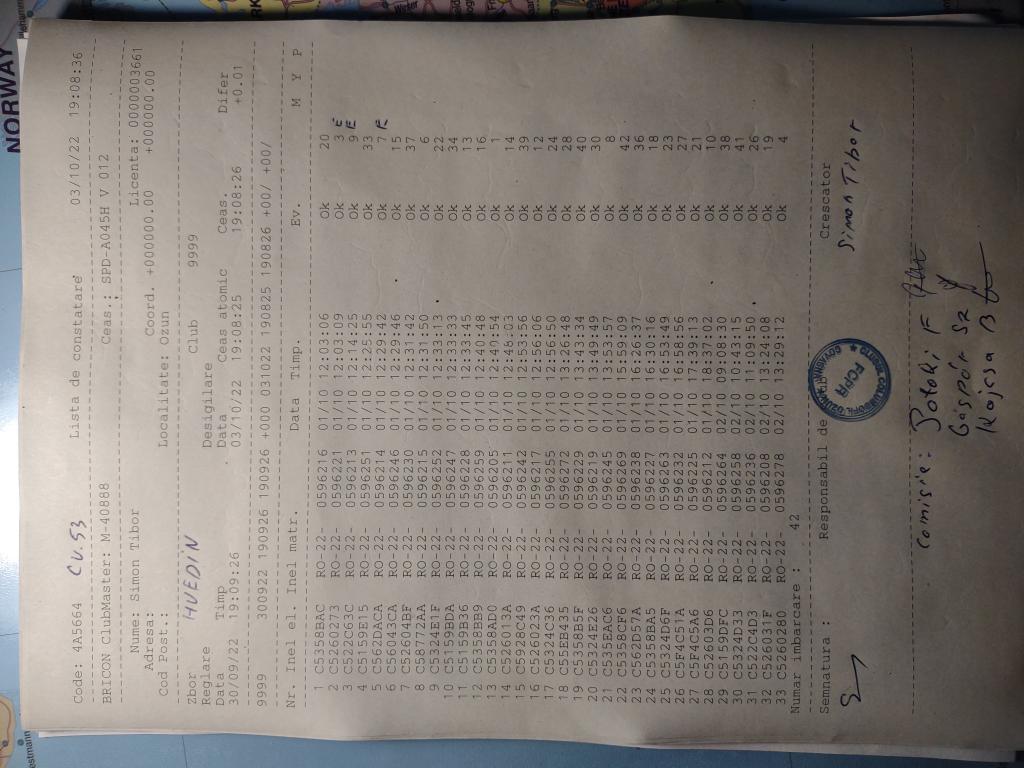 Code: 4A5664 CU.53 Lista de constatare 03/10/22 19:08:36
BRICON ClubMaster: M-40888 Ceas.: SPD-A045H V 012
Nume: Simon Tibor Licenta: 0000003661
Adresa: Coord. +000000.00 +000000.00
Cod Post.: Localitate: Ozun
Zbor HUEDIN Club 9999
Reglare Desigilare
Data Timp Data Ceas atomic Ceas. Difer
30/09/22 19:09:26 03/10/22 19:08:25 19:08:26 +0.01
9999 300922 190926 190926 +000 031022 190825 190826 +00/ +00/
Nr. Inel el. Inel matr. Data Timp. Ev. M Y P
1 C5358BAC RO-22- 0596216 01/10 12:03:06 Ok 20
2 C5260273 RO-22- 0596221 01/10 12:03:09 Ok 3 E
3 C522C63C RO-22- 0596213 01/10 12:14:25 Ok 9 E
4 C5159E15 RO-22- 0596251 01/10 12:25:55 Ok 33
5 C562DACA RO-22- 0596214 01/10 12:29:42 Ok 7 R
6 C56043CA RO-22- 0596246 01/10 12:29:46 Ok 15
7 C52604BF RO-22- 0596230 01/10 12:31:42 Ok 37
8 C58772AA RO-22- 0596215 01/10 12:31:50 Ok 6
9 C5324E1F RO-22- 0596252 01/10 12:33:13 Ok 22
10 C5159BDA RO-22- 0596247 01/10 12:33:33 Ok 34
11 C5159B36 RO-22- 0596228 01/10 12:33:45 Ok 13
12 C5358BB9 RO-22- 0596259 01/10 12:40:48 Ok 16
13 C5358AD0 RO-22- 0596205 01/10 12:40:54 Ok 1
14 C526013A RO-22- 0596211 01/10 12:48:03 Ok 14
15 C5928C49 RO-22- 0596242 01/10 12:53:56 Ok 39
16 C526023A RO-22- 0596217 01/10 12:56:06 Ok 12
17 C5324C36 RO-22- 0596255 01/10 12:56:50 Ok 24
18 C55EB435 RO-22- 0596272 01/10 13:26:48 Ok 28
19 C5358B5F RO-22- 0596229 01/10 13:43:34 Ok 40
20 C5324E26 RO-22- 0596219 01/10 13:49:49 Ok 30
21 C535EAC6 RO-22- 0596245 01/10 13:53:57 Ok 8
22 C5358CF6 RO-22- 0596269 01/10 15:59:09 Ok 42
23 C562D57A RO-22- 0596238 01/10 16:26:37 Ok 36
24 C5358BA5 RO-22- 0596227 01/10 16:30:16 Ok 18
25 C5324D6F RO-22- 0596263 01/10 16:53:49 Ok 23
26 C5F4C51A RO-22- 0596232 01/10 16:58:56 Ok 27
27 C5F4C5A6 RO-22- 0596225 01/10 17:39:13 Ok 21
28 C5203D6 RO-22- 0596212 01/10 18:37:02 Ok 10
29 C5159DFC RO-22- 0596264 02/10 09:08:30 Ok 38
30 C5324D33 RO-22- 0596258 02/10 10:43:15 Ok 41
31 C522C4D3 RO-22- 0596236 02/10 11:09:50 Ok 26
32 C526031F RO-22- 0596208 02/10 13:24:08 Ok 19
33 C5260280 RO-22- 0596278 02/10 13:29:12 Ok 4
Numar imbarcare : 42
Semnatura : Responsabil de Crescator
Simon Tibor
FCPR
comisie: Potoki F
Gáspár Sz
Kajcsa B
NORWAY